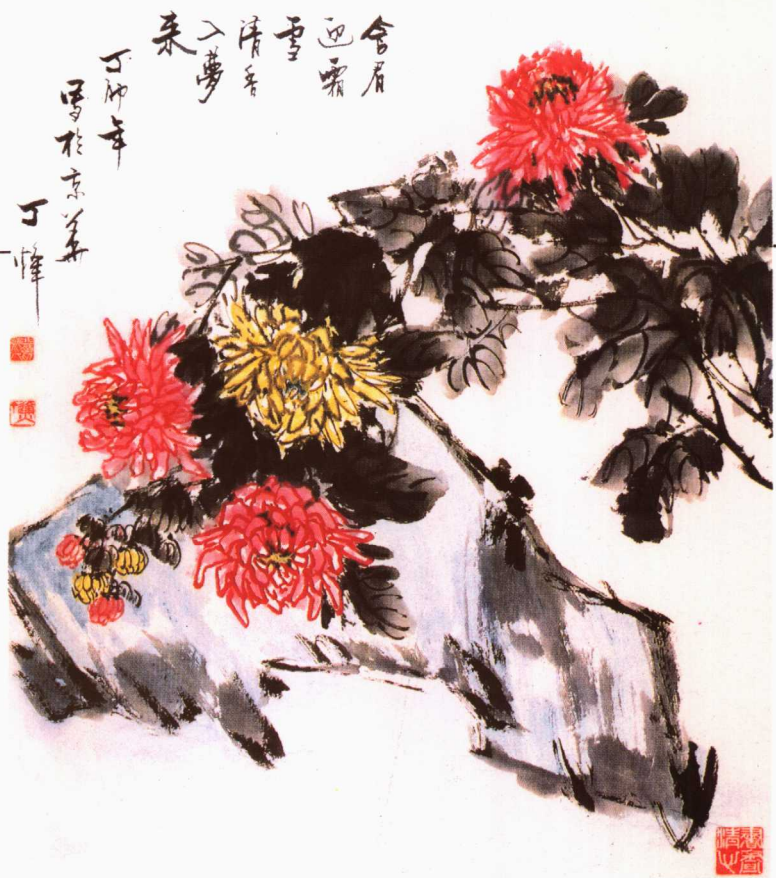 含眉
迎霜
雪
清香
入夢
来
丁卯年
寫於京華
丁烽